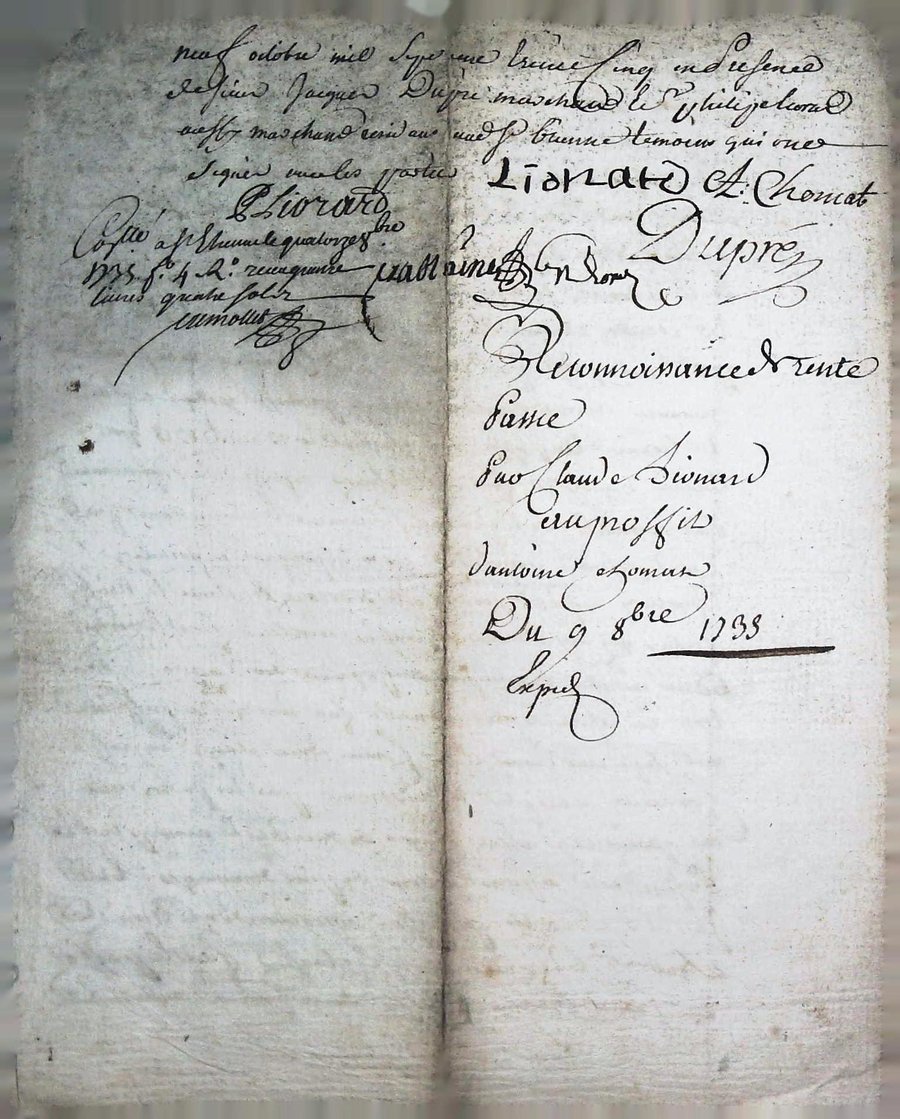 neuf octobre mil sept cens trente cinq en presence
de sieur Jacques Dupré marchand le sr philipe liorard
aussy marchand st Etienne temoins qui ont
signer avec les parties
Lionard A: Chomat
P Liorard
Dupré
Controllé a st Etienne le quatorze 8bre
1735 fo. 4 Ro. recu quatre
livres quatre sols
Reconnoissance de rente
Passée
Par Claude Lionard
au proffit
d'antoine chomat
Du 9 8bre 1735
Exped